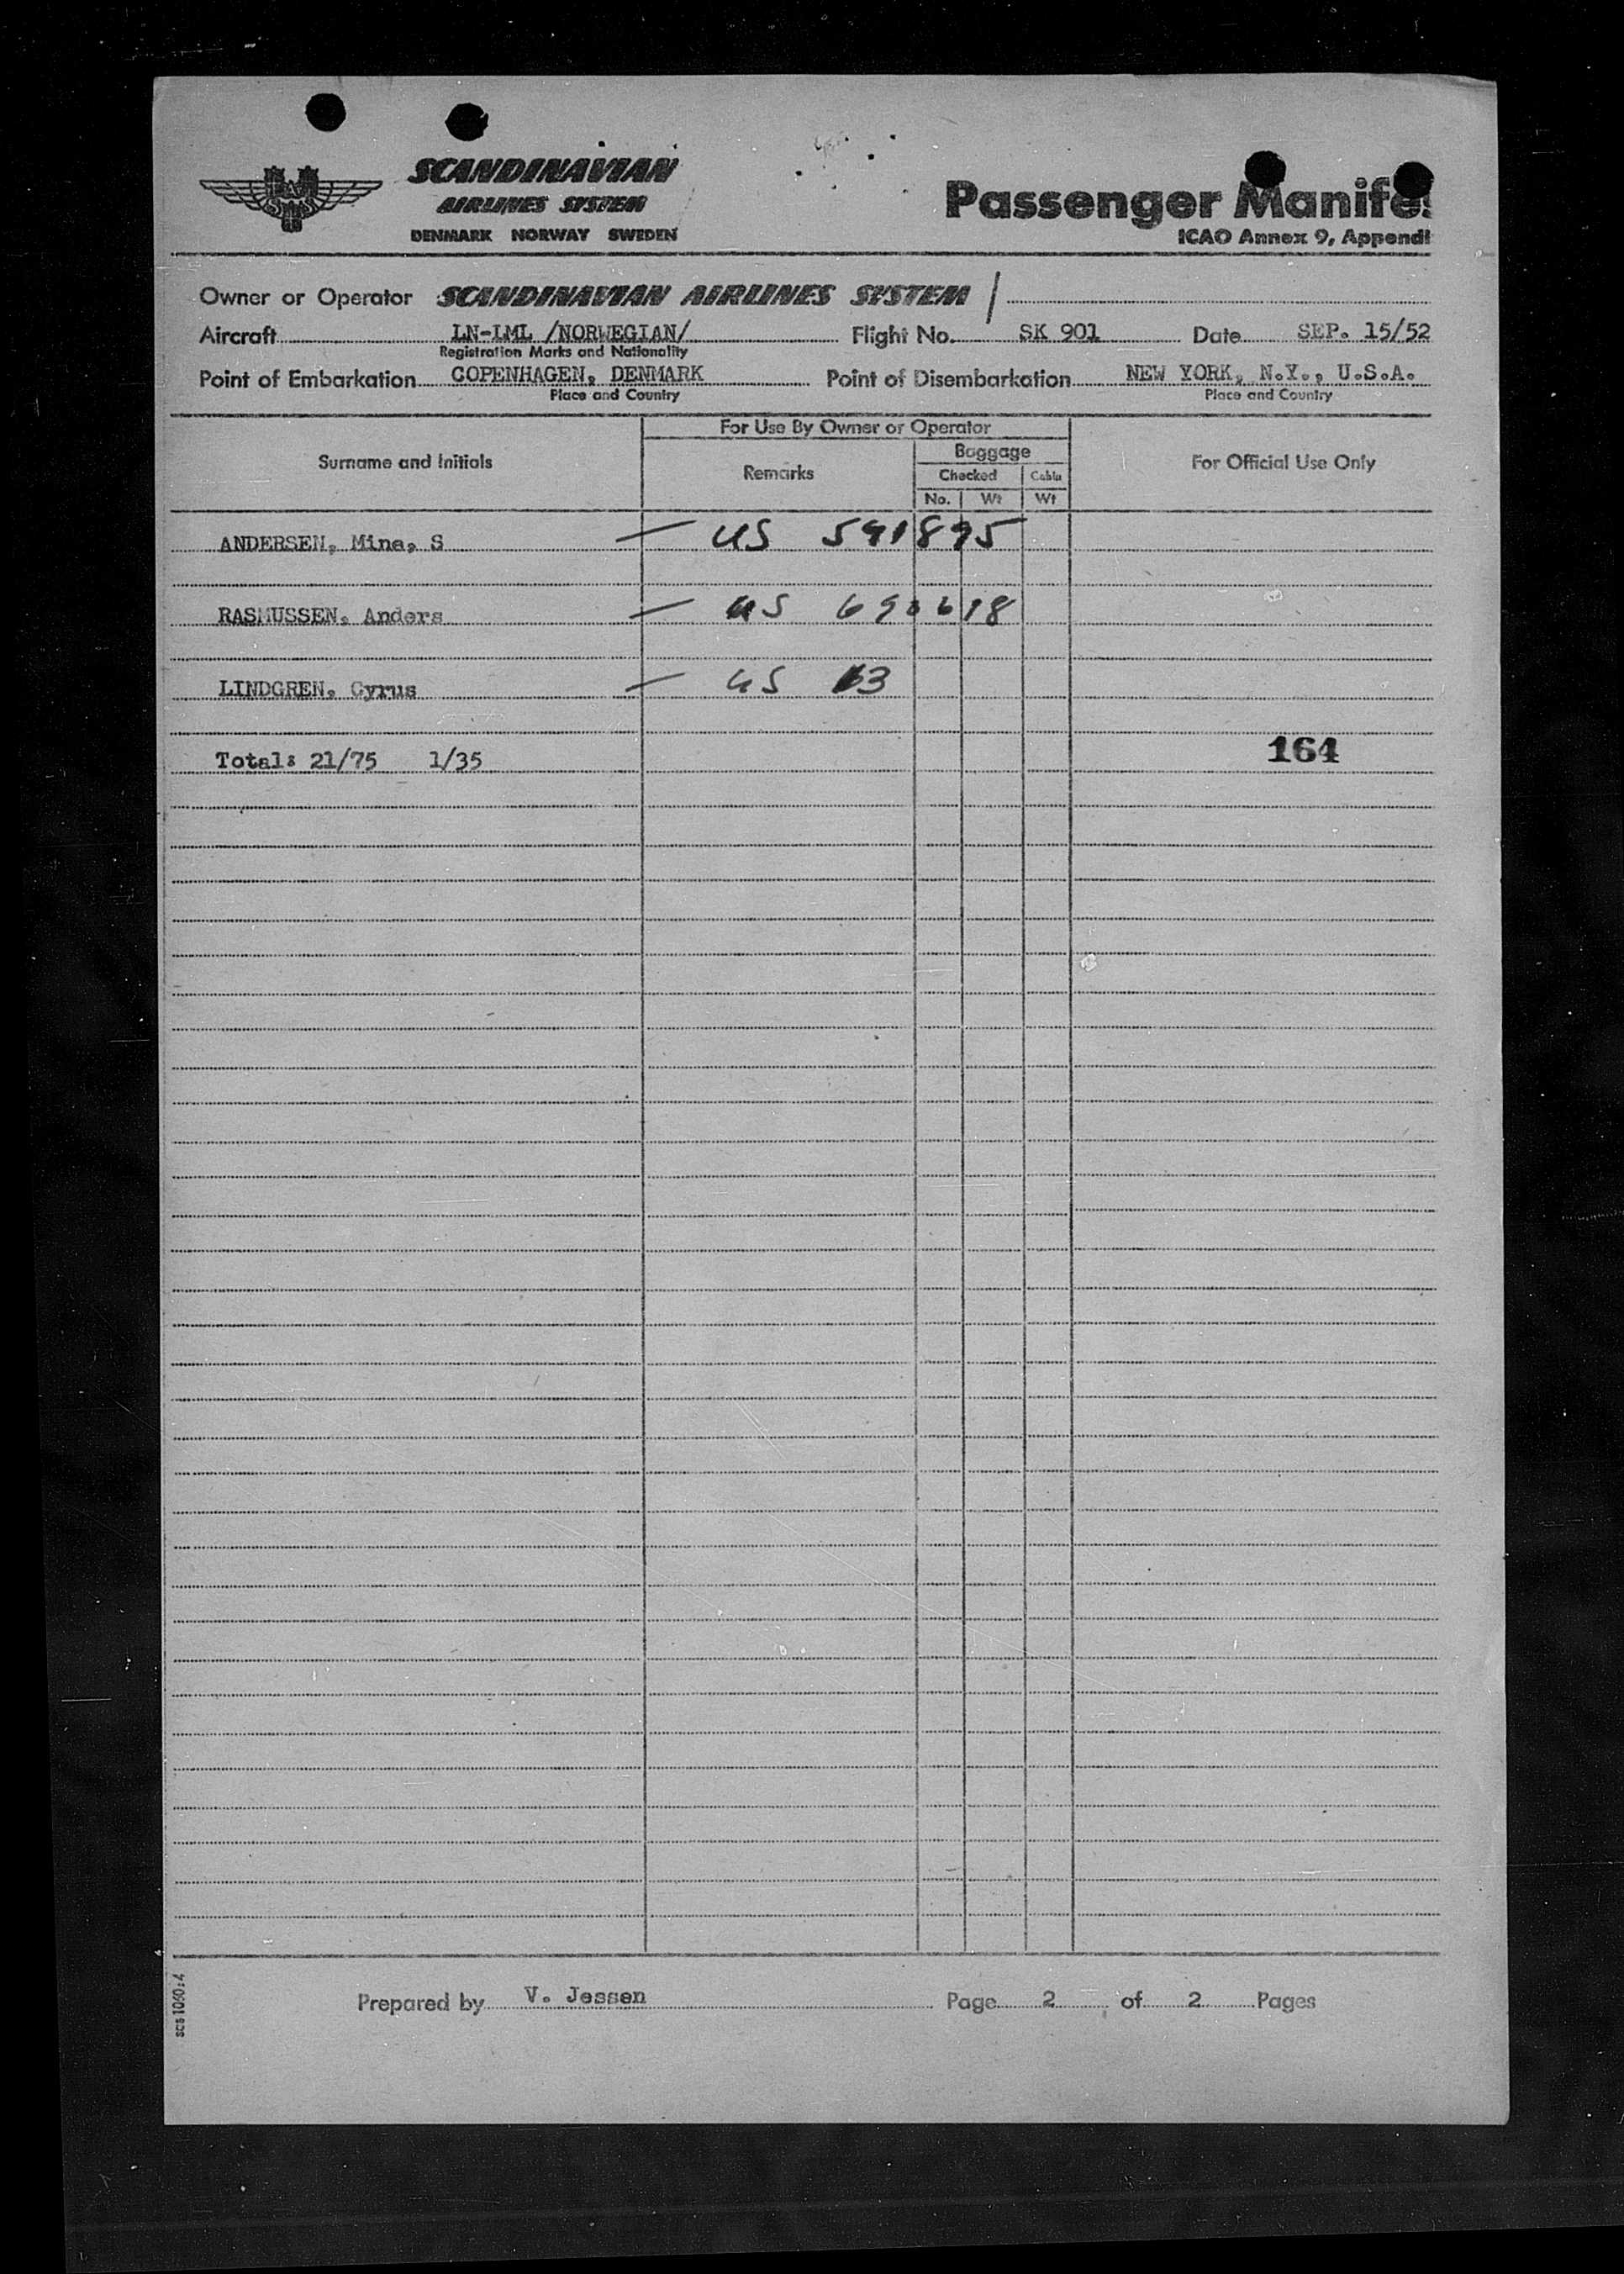 SCANDINAVIAN
AIRLINES SYSTEM
DENMARK NORWAY SWEDEN
SAS
Passenger Manifes
ICAO Annex 9, Appendi
Owner or Operator SCANDINAVIAN AIRLINES SYSTEM /
Aircraft LN-LML /NORWEGIAN/ Flight No. SK 901 Date SEP. 15/52
Registration Marks and Nationality
Point of Embarkation COPENHAGEN, DENMARK Point of Disembarkation NEW YORK, N.Y., U.S.A.
Place and Country Place and Country
For Use By Owner or Operator
Surname and Initials Remarks Baggage For Official Use Only
Checked Cabin
No. Wt Wt
ANDERSEN, Mine, S — US 591895
RASMUSSEN, Anders — US 690618
LINDGREN, Cyrus — US 63
Total: 21/75 1/35 164
Prepared by V. Jessen Page 2 of 2 Pages
scs 1060:4